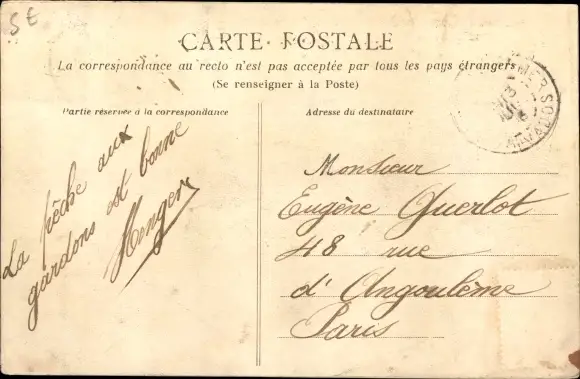 5€
CARTE POSTALE
La correspondance au recto n'est pas acceptée par tous les pays étrangers
(Se renseigner à la Poste)
Partie réservée à la correspondance
La pêche aux
gardons est bonne
Menger
Adresse du destinataire
Monsieur
Eugène Querlot
48 rue
d'Angoulême
Paris